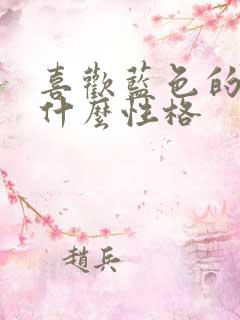 喜歡藍色的
什麼性格
趙兵